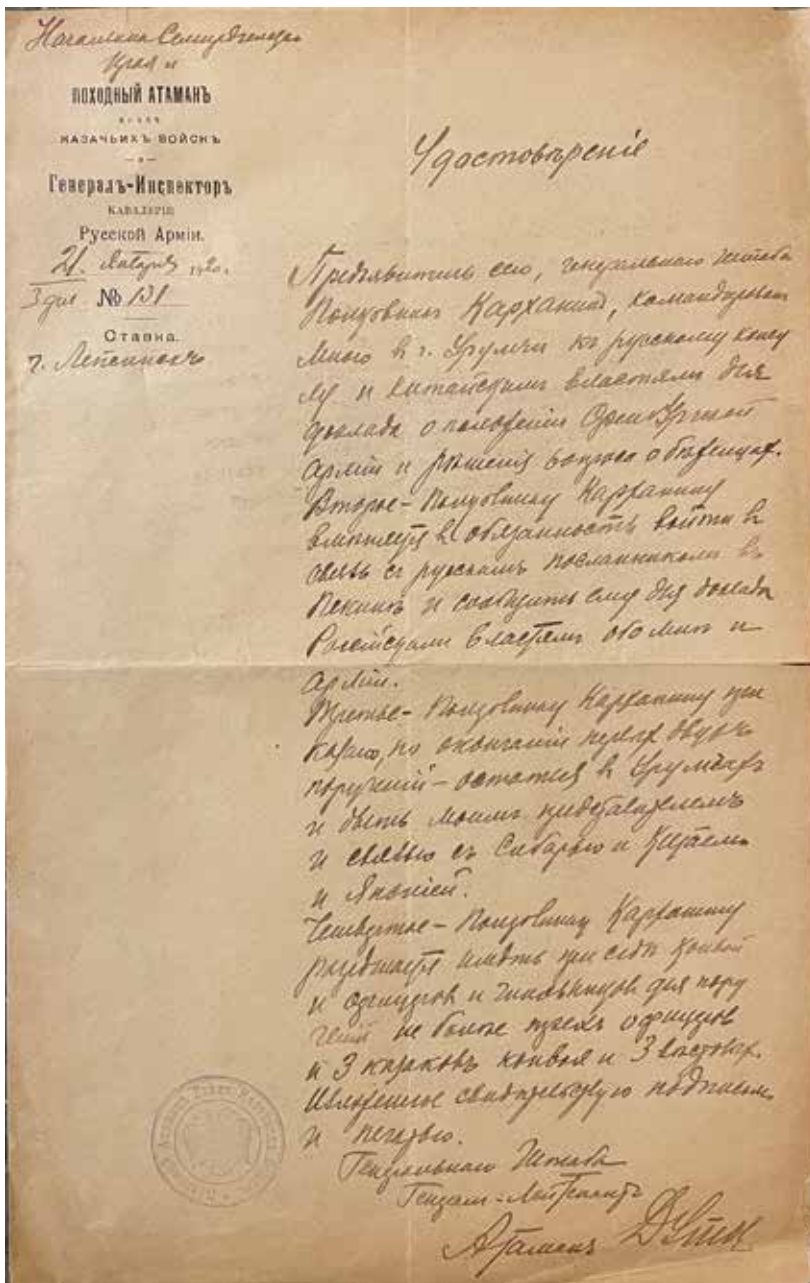 Начальника Семиреченского
Края и
ПОХОДНЫЙ АТАМАНЪ
КАЗАЧЬИХЪ ВОЙСКЪ
Генералъ-Инспекторъ
КАВАЛЕРІИ
Русской Арміи.
21. Января 1920 г.
3 дня № 131
Ставка.
г. Лепсинскъ
Удостовѣреніе
Предъявитель сего, генеральнаго штаба
Полковникъ Карханинъ, командированъ
мною в г. Урумчи къ русскому консу
лу и китайскимъ властямъ для
доклада о положеніи Оренбургской
Арміи и рѣшенія вопроса о бѣженцах.
Второе - Полковнику Карханину
вменяется в обязанность войти в
связь съ русскимъ посланникомъ въ
Пекинѣ и сообщить ему для доклада
Россійскими властямъ обо мнѣ и
арміи.
Третье - Полковнику Карханину при
казано, по окончаніи первых двухъ
порученій - остаться в Урумчах
и быть моимъ представителемъ
и связью съ Сибирью и Китаемъ
и Японіей.
Четвертое - Полковнику Карханину
разрешается имѣть при себѣ конвой
и офицеров и чиновников для пору
чений не более трехъ офицеров
и 3 казаковъ конвоя и 3 вестовых.
Изложенное свидетельствую подписью
и печатью.
Генеральнаго Штаба
Генерал-Лейтенантъ
Атаманъ Дутов